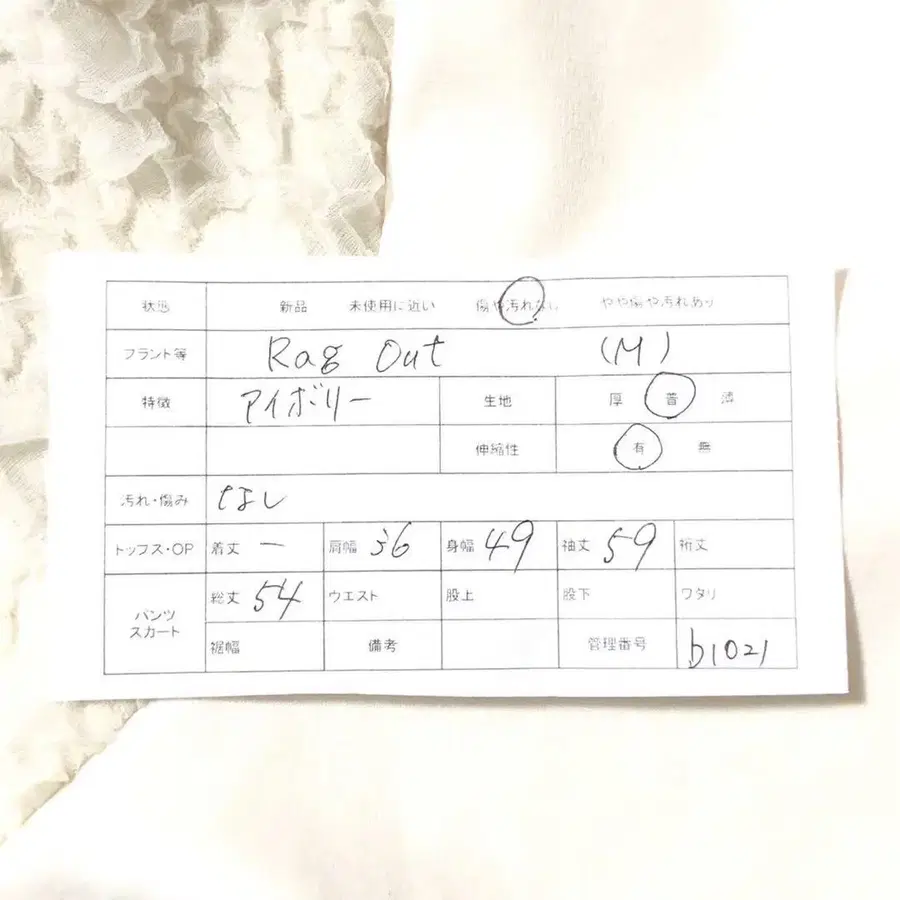 状態 新品 未使用に近い 傷や汚れなし やや傷や汚れあり
ブランド等 Rag Out (M)
特徴 アイボリー 生地 厚 普 薄
伸縮性 有 無
汚れ・傷み なし
トップス・OP 着丈 ー 肩幅 36 身幅 49 袖丈 59 裄丈
パンツ スカート 総丈 54 ウエスト 股上 股下 ワタリ
裾幅 備考 管理番号 b1021